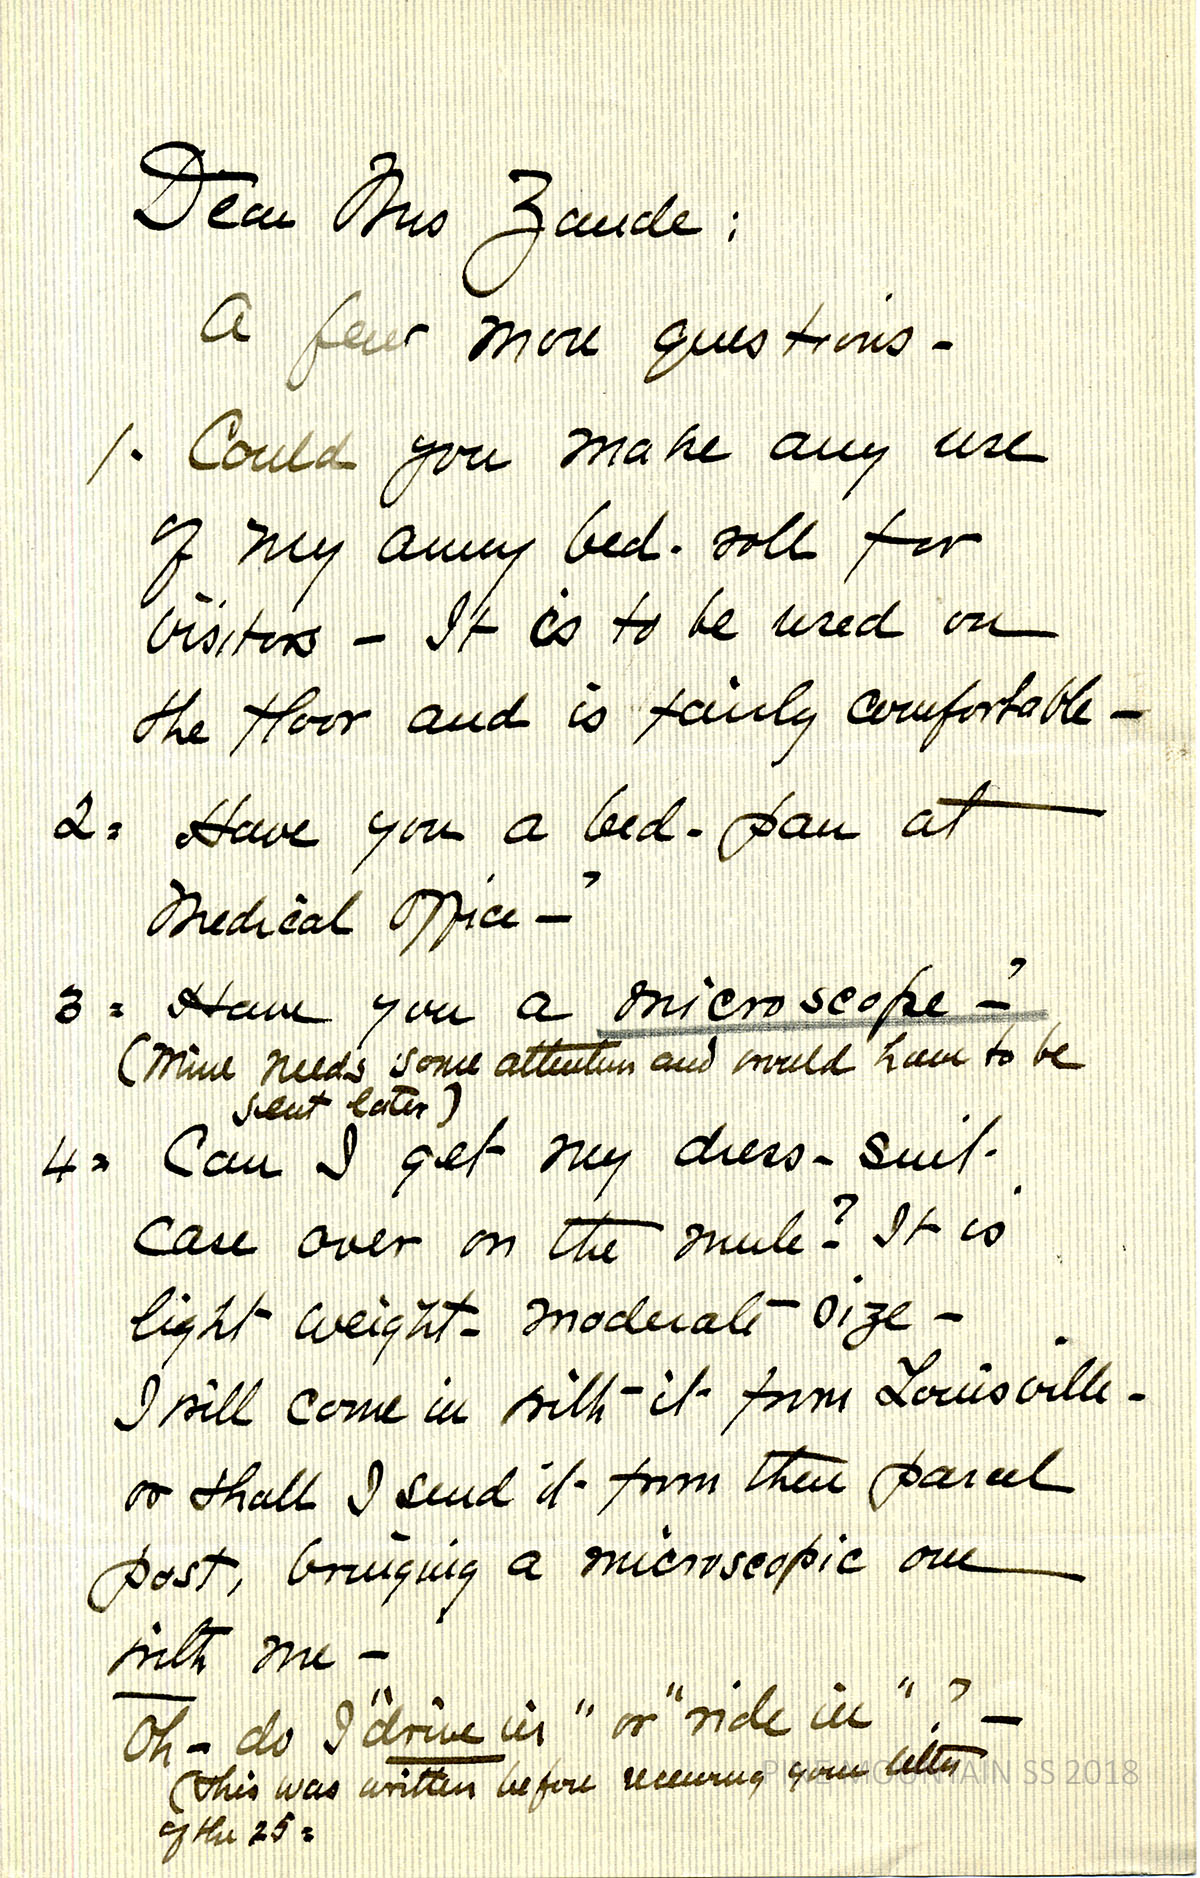 Dear Mrs Zande:
A few more questions -
1. Could you make any use
of my army bed-roll for
visitors - It is to be used on
the floor and is fairly comfortable -
2= Have you a bed-pan at
Medical Office -?
3= Have you a microscope -?
(Mine needs some attention and would have to be
sent later)
4= Can I get my dress-suit-
case over on the mule? It is
light weight - moderate size -
I will come in with it from Louisville -
or shall I send it from there parcel
post, bringing a microscopic one
with me -
Oh - do I "drive in" or "ride in"? -
(This was written before receiving your letter
of the 25=
PINE MOUNTAIN SS 2018